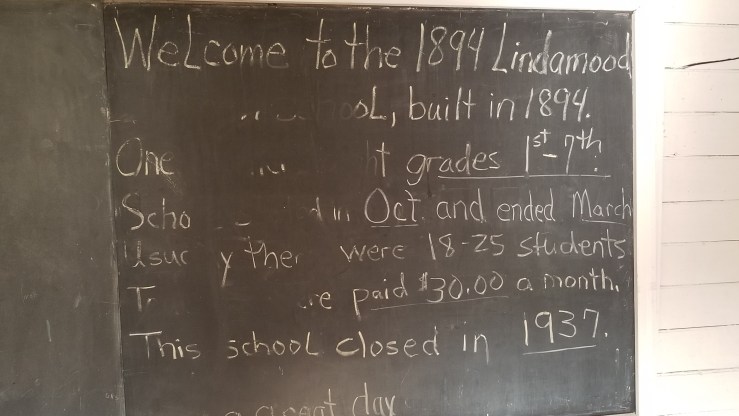 Welcome to the 1894 Lindamood
built in 1894.
One grades 1st-7th.
in Oct. and ended March
were 18-25 students
paid $30.00 a month.
This school closed in 1937.
a great day